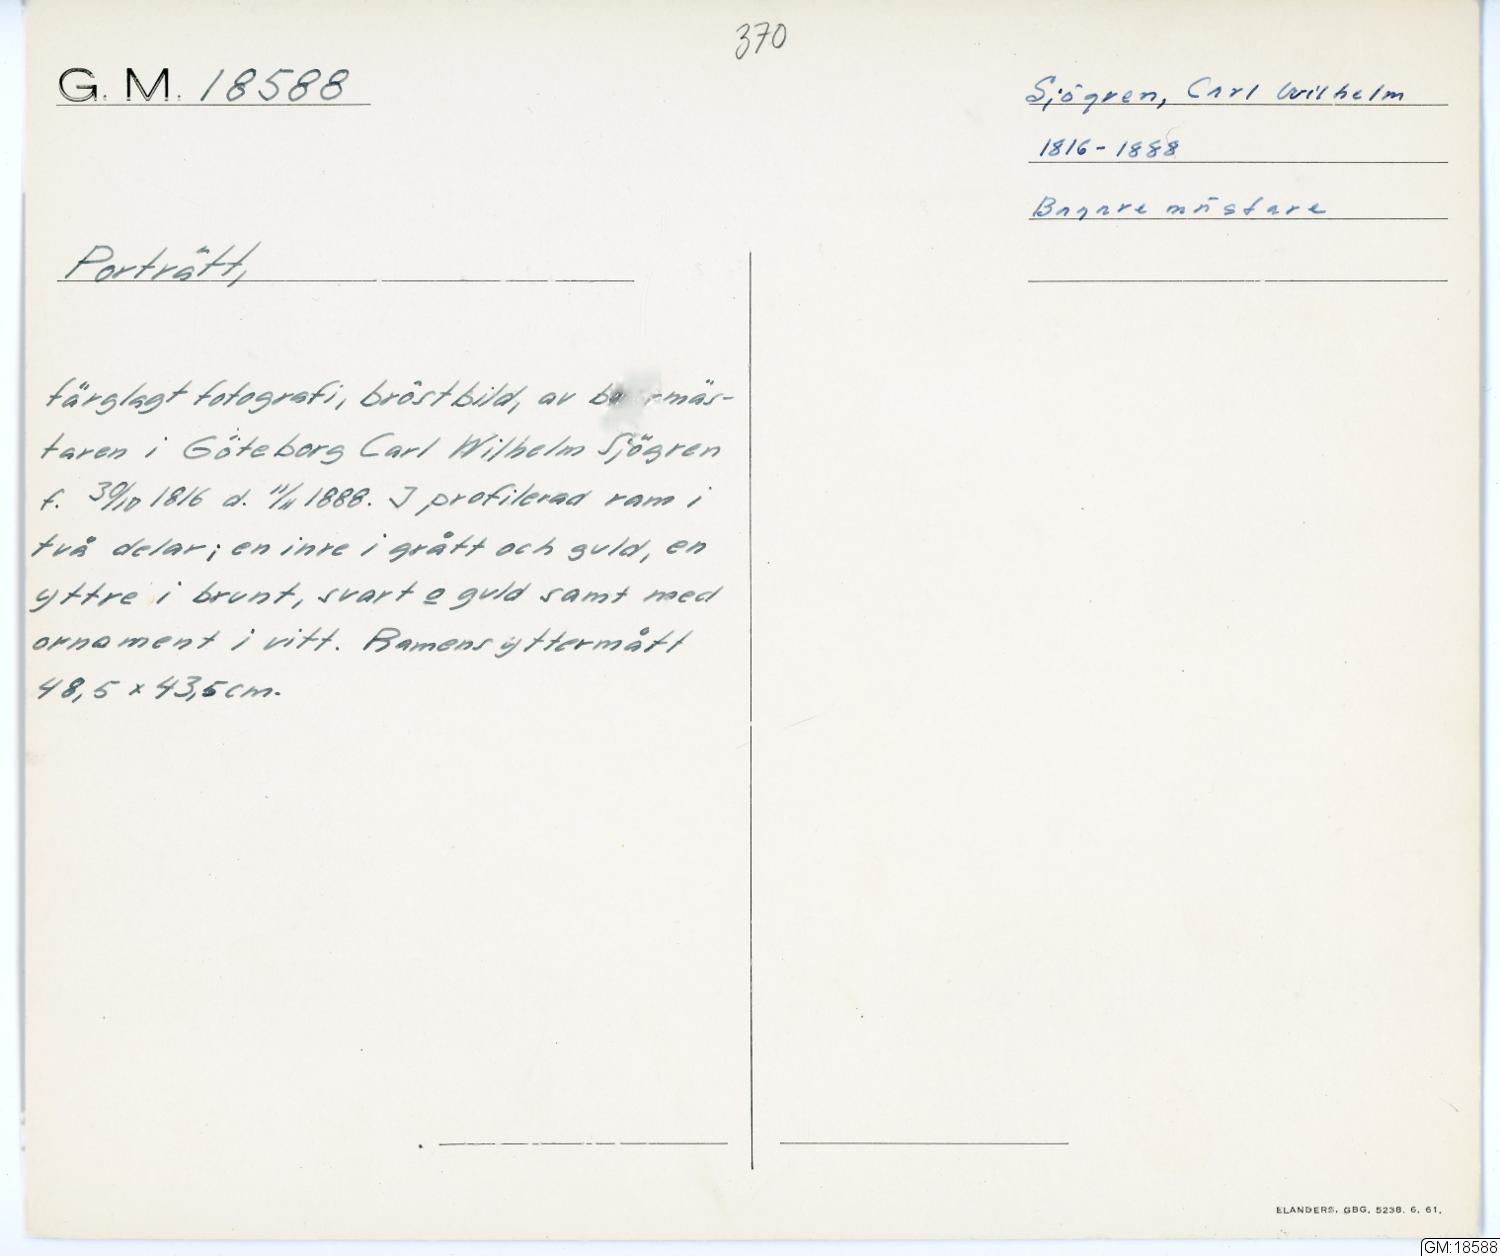 370
G. M. 18588
Sjögren, Carl Wilhelm
1816-1888
Bagare mästare
Porträtt,
färglagt fotografi, bröstbild, av mäs-
taren i Göteborg Carl Wilhelm Sjögren
f. 30/10 1816 d. 11/11 1888. I profilerad ram i
två delar; en inre i grått och guld, en
yttre i brunt, svart o guld samt med
ornament i vitt. Ramens yttermått
48,5 x 43,5 cm.
ELANDERS, GBG, 5238. 6. 61.
GM:18588